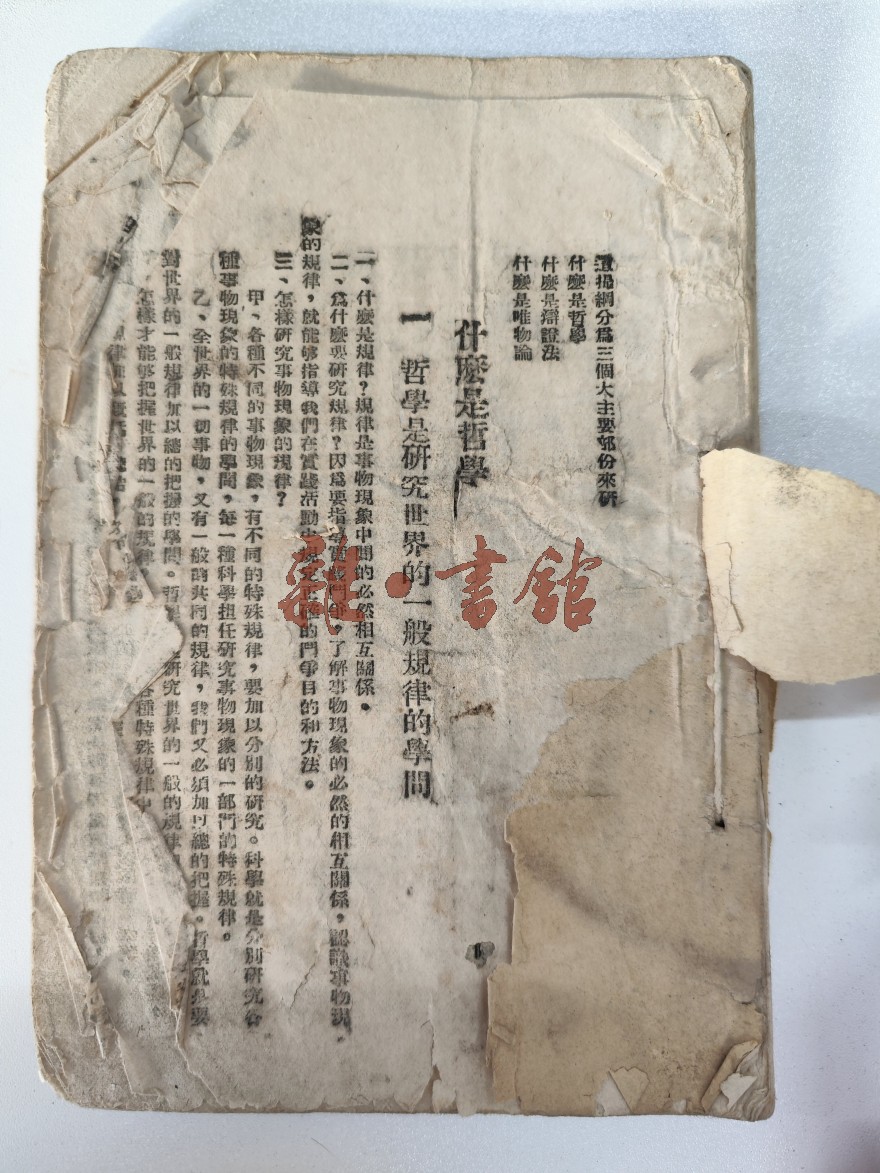 這提綱分爲三個大主要部份來研
什麼是哲學
什麼是辯證法
什麼是唯物論
什麼是哲學
一 哲學是研究世界的一般規律的學問
一、什麼是規律？規律是事物現象中間的必然相互關係。
二、爲什麼要研究規律？因爲要指導實踐鬥爭，了解事物現象的必然的相互關係，認識事物現
象的規律，就能够指導我們在實踐活動中規定正確的鬥爭目的和方法。
三、怎樣研究事物現象的規律？
甲、各種不同的事物現象，有不同的特殊規律，要加以分別的研究。科學就是分別研究各
種事物現象的特殊規律的學問，每一種科學担任研究事物現象的一部門的特殊規律。
乙、全世界的一切事物，又有一般的共同的規律，我們又必須加以總的把握。哲學就是要
對世界的一般規律加以總的把握的學問。哲 研究世界的一般的規律
怎樣才能够把握世界的一般的規律 各種特殊規律中
雜·書館